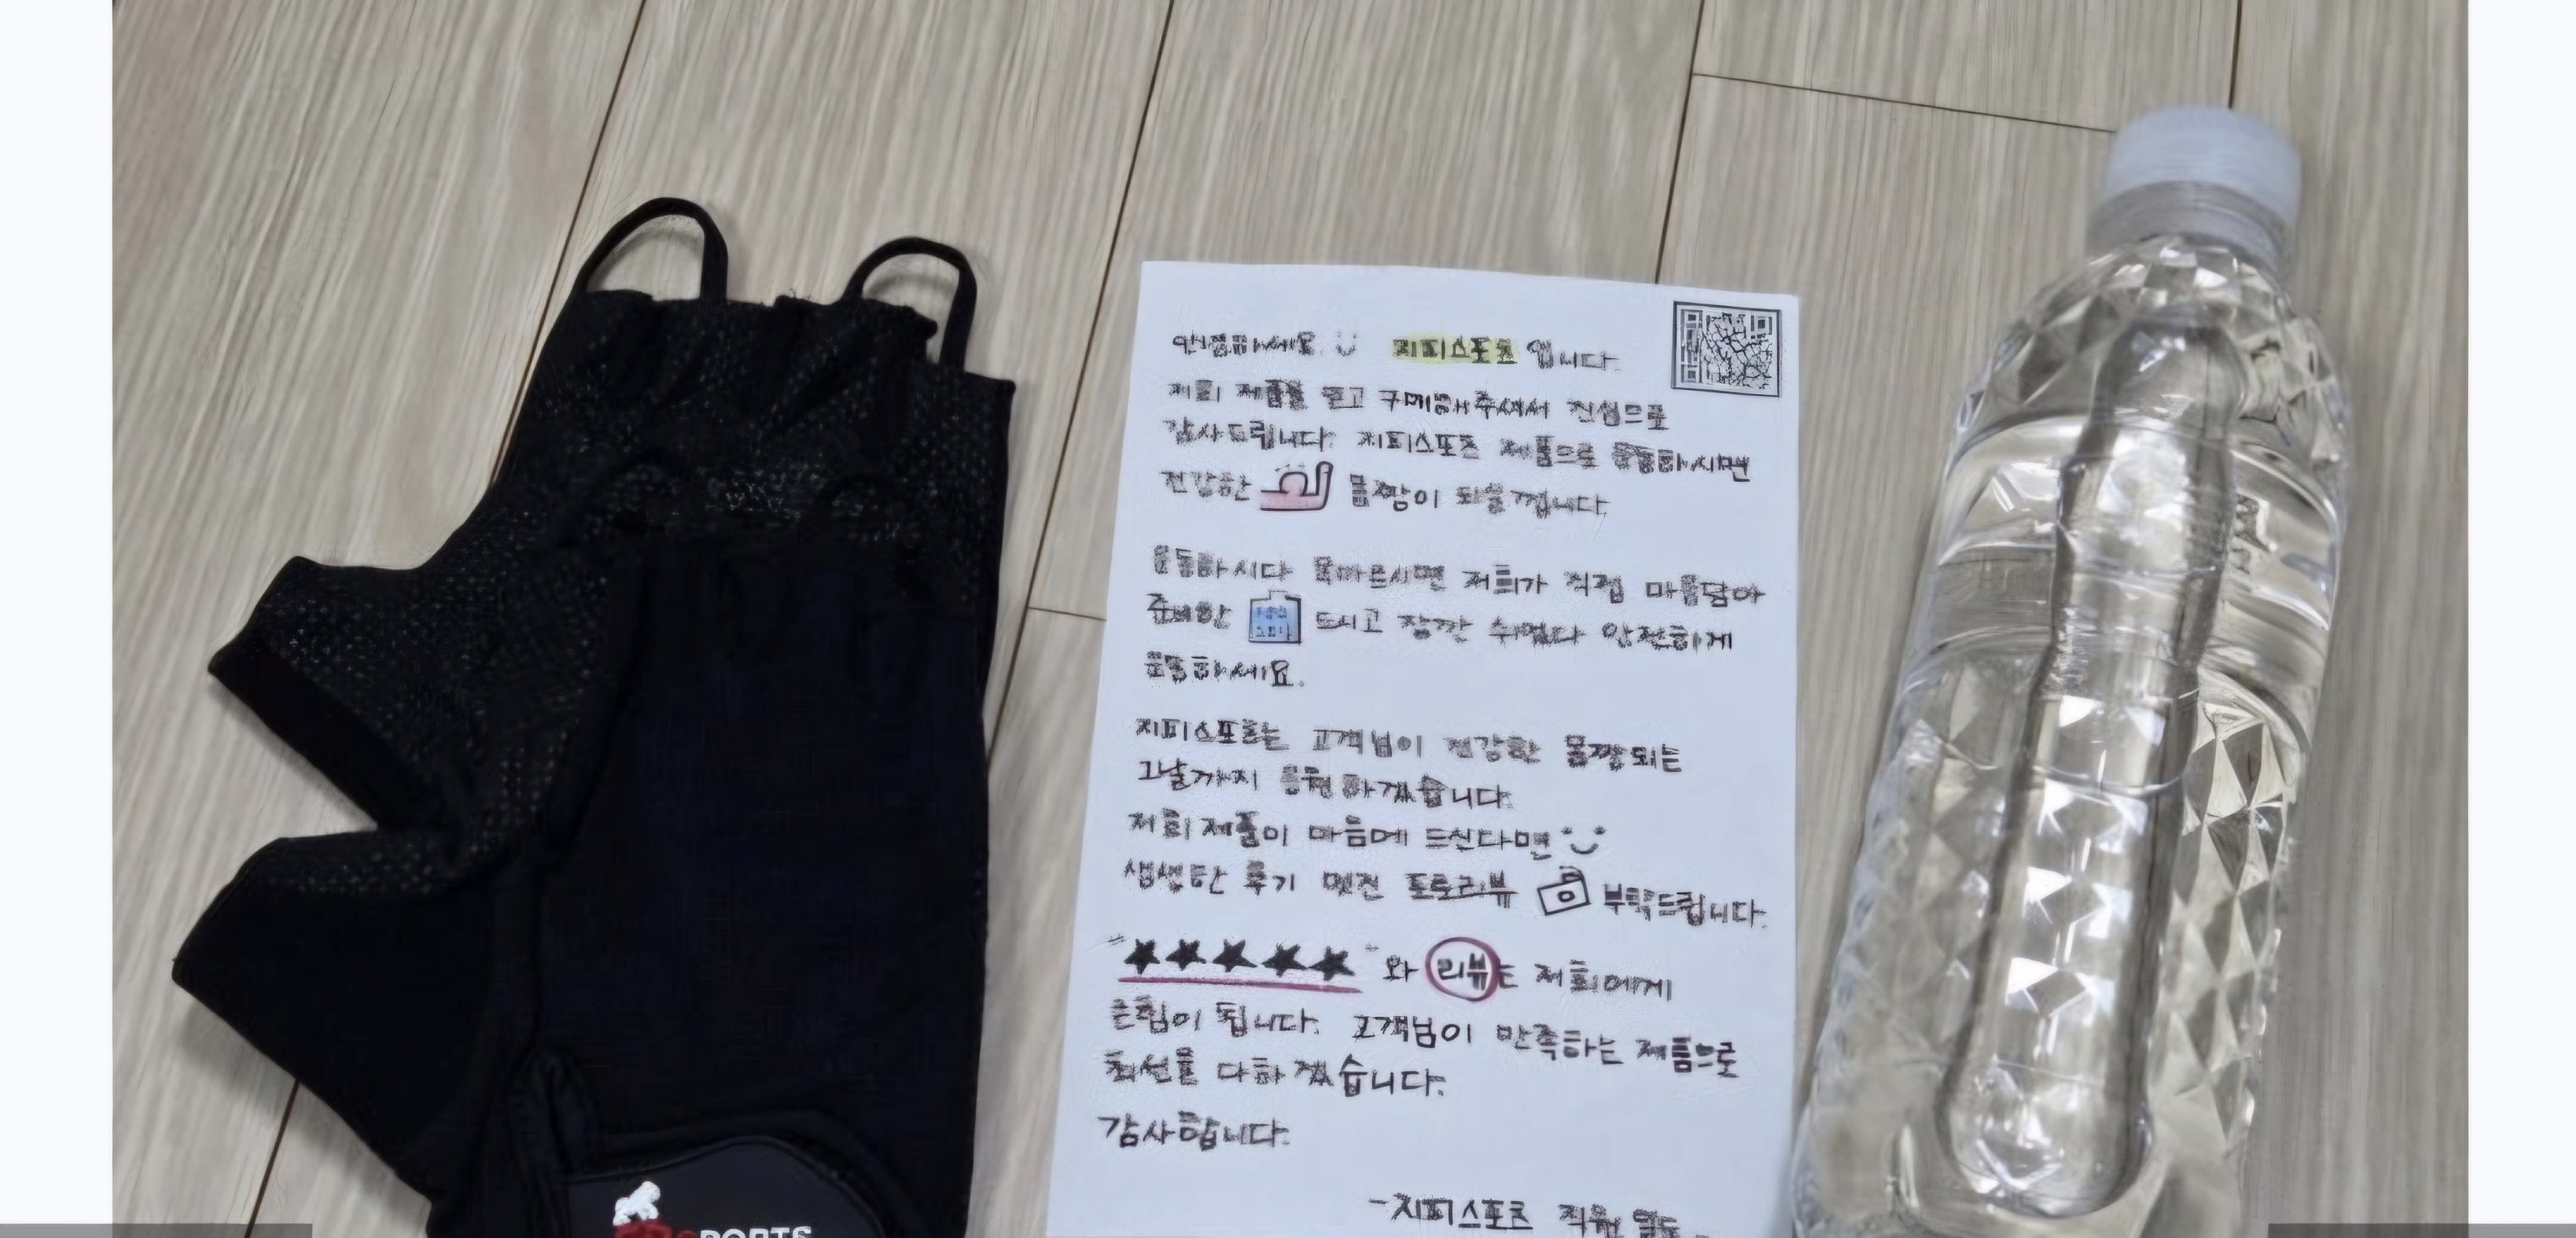 안녕하세요 지피스포츠 입니다.
저희 제품을 믿고 구매해주셔서 진심으로
감사드립니다. 지피스포츠 제품으로 운동하시면
건강한 몸짱이 되실겁니다.
운동하시다 목마르시면 저희가 직접 마음담아
준비한 드시고 잠깐 쉬었다 안전하게
운동하세요.
지피스포츠는 고객님이 건강한 몸짱되는
그날까지 응원하겠습니다.
저희 제품이 마음에 드신다면
생생한 후기 멋진 포토리뷰 부탁드립니다.
"★★★★★" 와 리뷰는 저희에게
큰힘이 됩니다. 고객님이 만족하는 제품으로
최선을 다하겠습니다.
감사합니다.
-지피스포츠 직원 일동
SPORTS